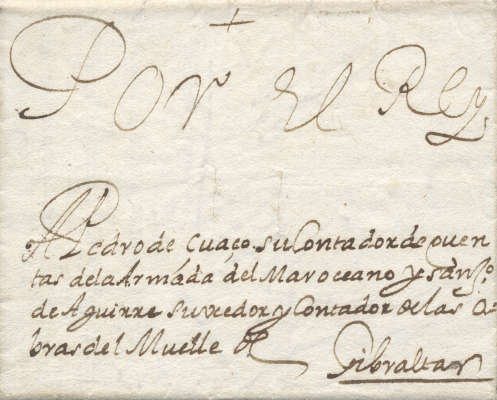 +
Por El Rey
A Pedro de Cuaço su Contador de quen
tas de la Armada del Mar oceano y
de Aguirre su veedor y Contador de las O-
bras del Muelle de
Gibraltar